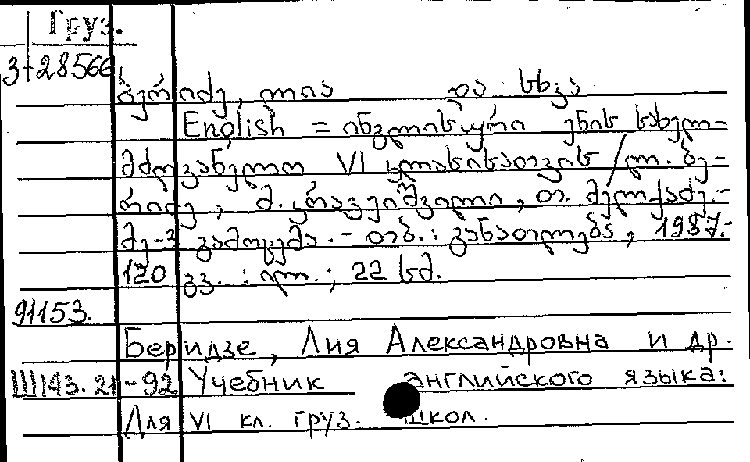 Груз.
3-28566
ბერიძე, ლია და სხვა
English = ინგლისური ენის სახელ-
მძღვანელო VI კლასისათვის / ლ. ბე-
რიძე, მ. კრავეიშვილი, თ. მელქაძე.-
მე-2 გამოცემა. - თბ.: განათლება, 1987.-
120 გვ. : ილ. ; 22 სმ.
91153.
Беридзе, Лия Александровна и др.
Ш143.21-92 Учебник английского языка:
Для VI кл. груз. школ.